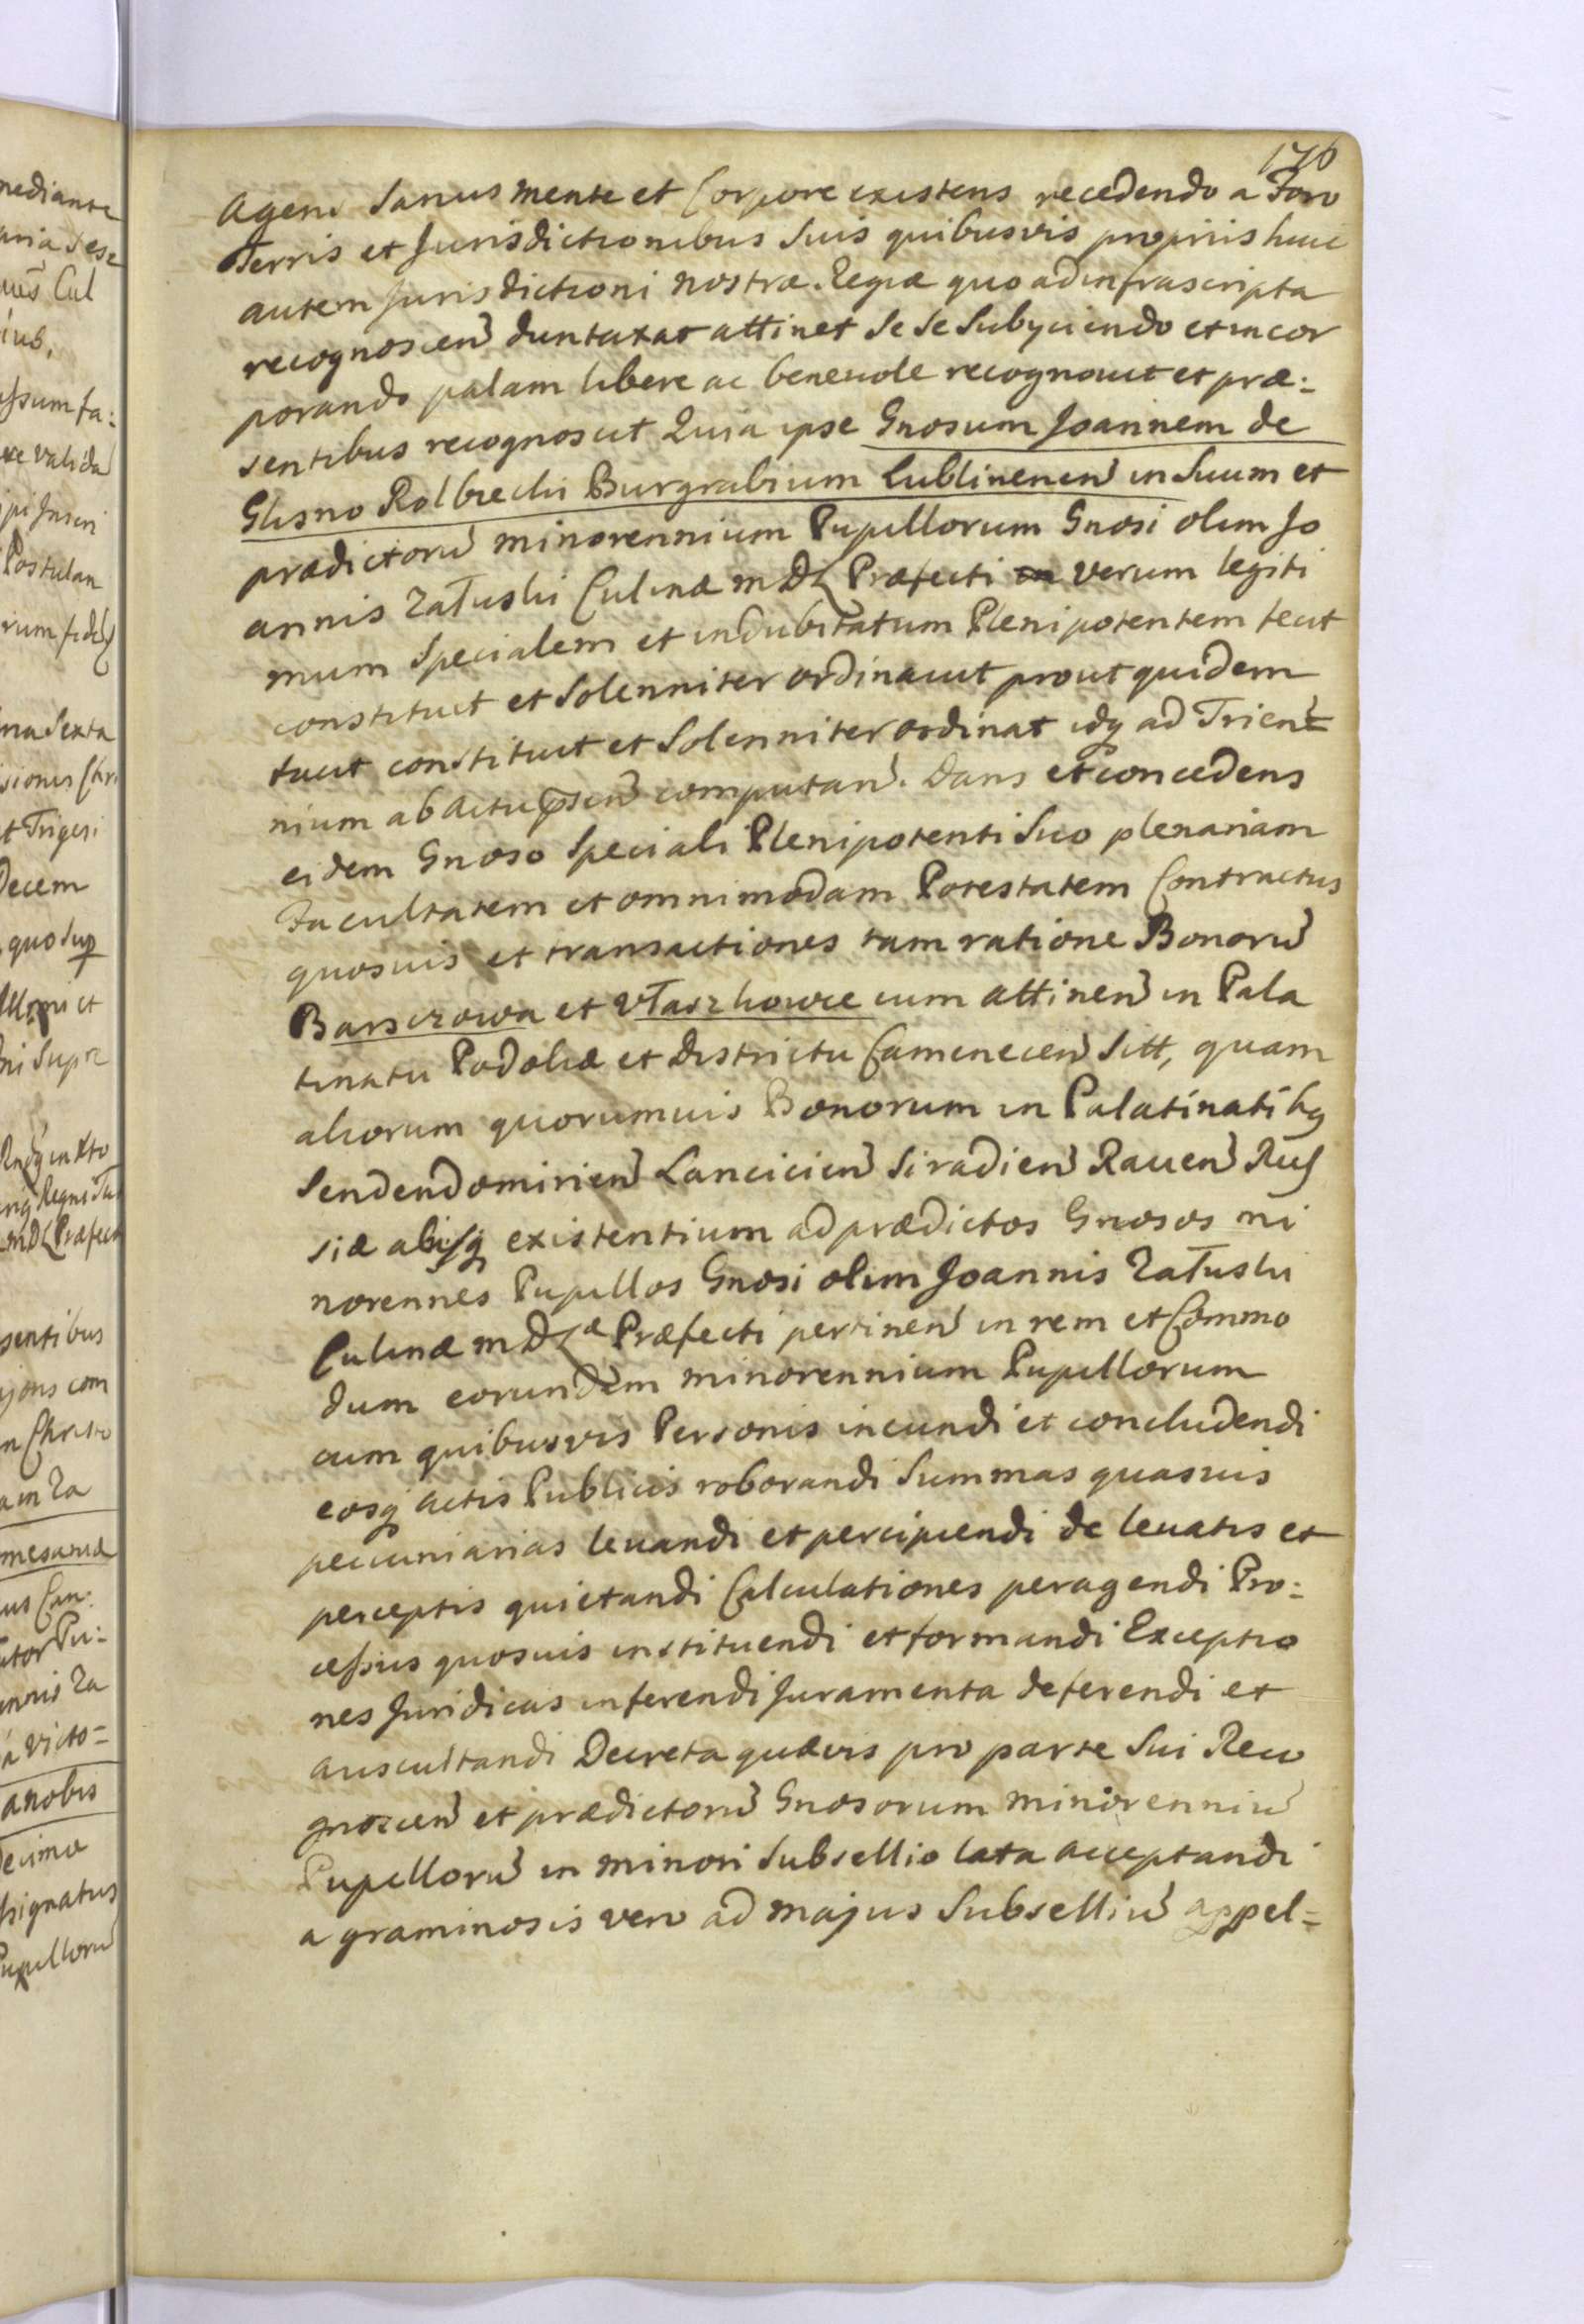 176
Agens Sanus mente et Corpore existens recedendo a Foro
Terris et Jurisdictionibus Suis quibusvis propriis huic
autem Jurisdictioni nostræ Regiæ quo ad infrascripta
recognoscen duntaxat attinet Se Se Subyciendo et incor
porando palam libere ac beneuole recognouit et præ:
sentibus recognoscit Quia ipse Gnosum Joannem de
Glisno Rolbiecki Burgrabium Lublinenen in Suum et
prædictoru minorennium Pupillorum Gnosi olim Jo
annis Załuski Culinæ MDL Præfecti verum legiti
mum Specialem et indubitatum Plenipotentem fecit
constituit et Solenniter ordinauit prout quidem
facit constituit et Solenniter ordinat idq ad Trien
nium ab actu psen computan. Dans et concedens
eidem Gnoso Speciali Plenipotenti Suo plenariam
Facultatem et omnimodam Potestatem Contractus
quosuis et transactiones tam ratione Bonoru
Barsczowa et Vłaszkowce cum attinen in Pala
tinatu Podoliæ et Districtu Camenecen Sitt, quam
aliorum quorumuis Bonorum in Palatinatibq
Sendendomirien Lancicien Siradien Rauen Rus
siæ aliisq existentium ad prædictos Gnosos mi
norennes Pupillos Gnosi olim Joannis Załuski
Culinæ MDLæ Præfecti pertinen in rem et Commo
dum eorundem minorennium Pupillorum
cum quibusvis Personis ineundi et concludendi
eosq actis Publicis roborandi Summas quasuis
pecuniarias leuandi et percipiendi de leuatis et
perceptis quietandi Calculationes peragendi Pro:
cessus quosuis instituendi et formandi Exceptio
nes Juridicas inferendi Juramenta deferendi et
auscultandi Decreta quævis pro parte Sui Reco
gnoscen et prædictoru Gnosorum minorenniu
Pupilloru in minori Subsellio lata acceptandi
a graminosis vero ad majus Subselliu appel=